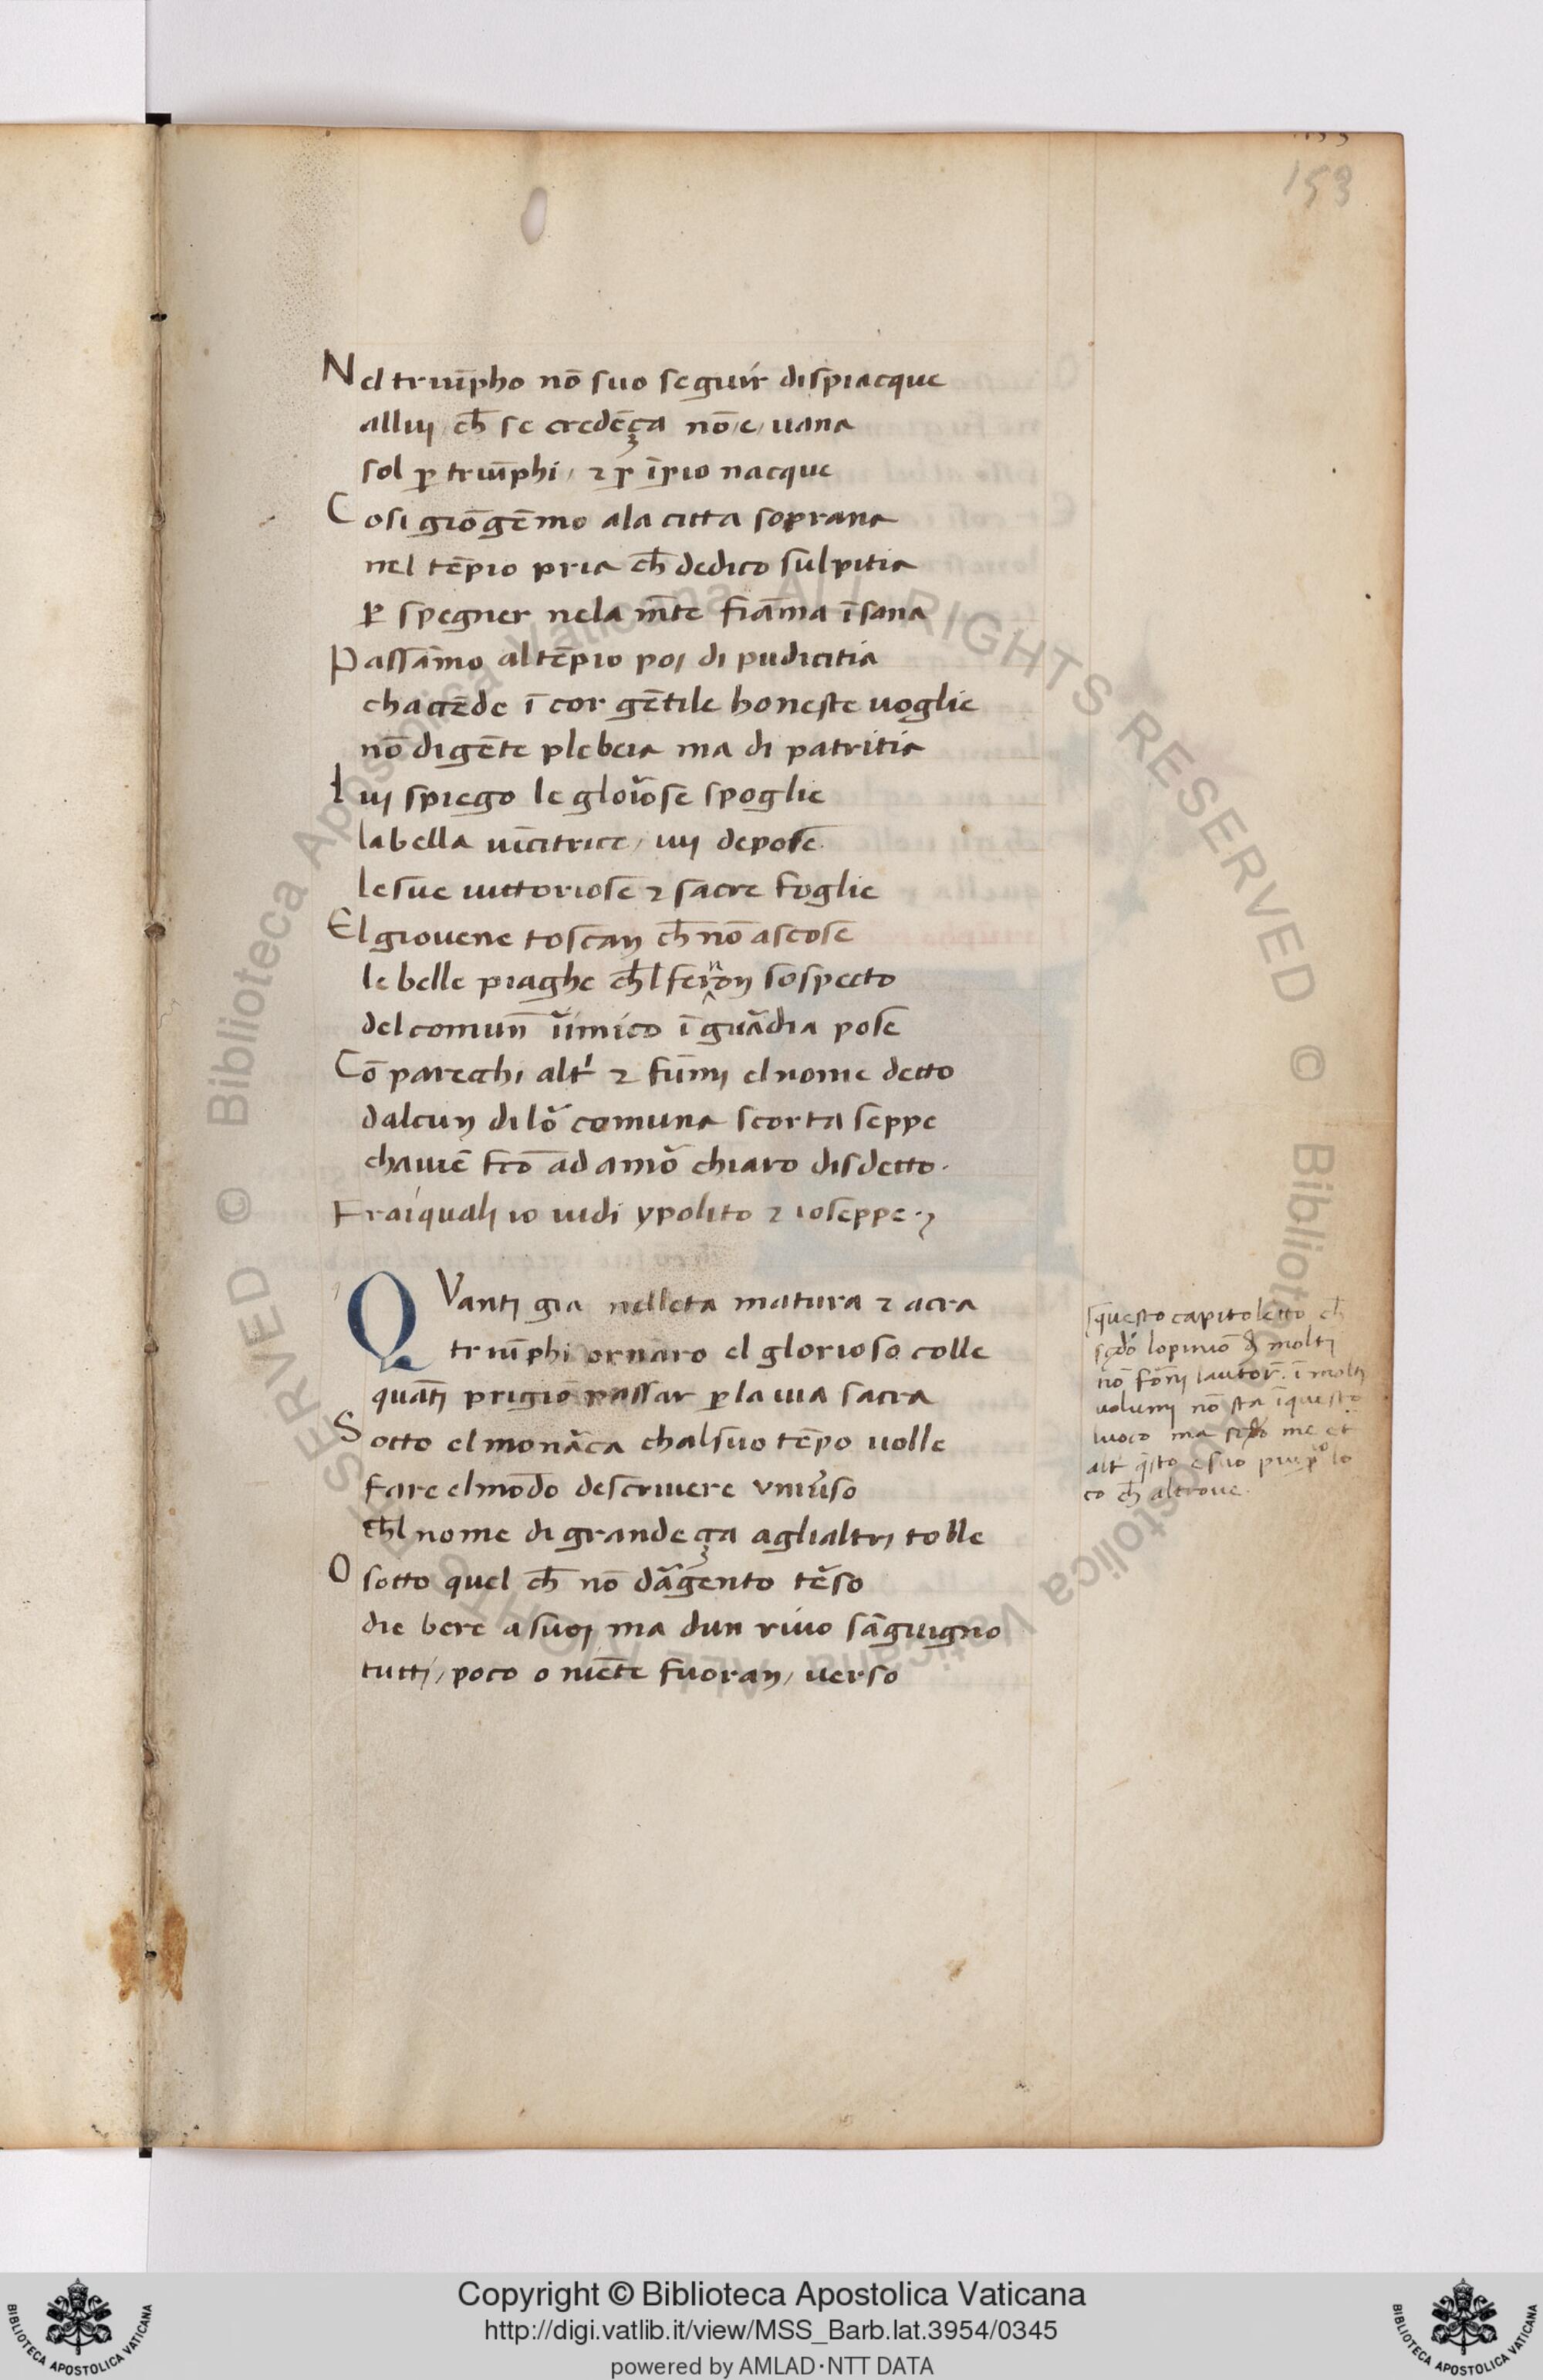 153
Nel triūpho nō suo seguir dispiacque
alluj ch̄ se credēça nō e uana
sol ꝑ triūphi, ⁊ ꝑ īꝑio nacque
Cosi giōgēmo ala citta soprana
nel tēpio pria ch̄ dedico sulpitia
ꝑ spegner nela mēte fiāma īsana
Passāmo al tēpio poi di pudicitia
chaccēde ī cor gētile honeste uoglie
nō di gēte plebeia ma di patritia
Iuj spiego le gloriose spoglie
la bella uīcitrice, iuj depose
le sue uittoriose ⁊ sacre foglie
El giouene toscan ch̄ nō ascose
le belle piaghe ch̄l ferron sospecto
del comun īimico ī guardia pose
Cō parecchi altri ⁊ fūmi el nome detto
dalcun di lor comuna scorta seppe
chauiē fco ad amor chiaro disdetto.
Frai quali io uidi ypolito ⁊ ioseppe.
QVanti gia nelleta matura ⁊ acra
triūphi ornaro el glorioso colle
quāti prigiō passar ꝑ la uia sacra
Sotto el monarca chal suo tēpo uolle
fare el mōdo descriuere vniuerso
ch̄l nome di grandeça aglialtri tolle
O sotto quel ch̄ nō dargento terso
die bere a suoi ma dun riuo sāguigno
tutti, poco o niēte fuoran, uerso
questo capitoletto ch̄
scdo lopiniō di molti
nō fornj lautor. ī molti
uolumj nō sta ī questo
luoco ma scdo me et
altri q̄sto e suo piu ꝓprio lo
co ch̄ altroue.
Copyright © Biblioteca Apostolica Vaticana
http://digi.vatlib.it/view/MSS_Barb.lat.3954/0345
powered by AMLAD·NTT DATA